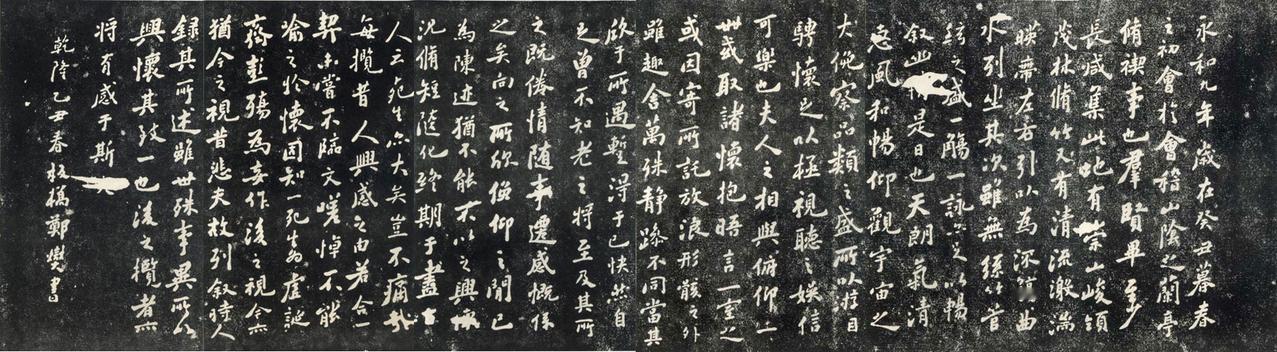 永和九年歲在癸丑暮春
之初會於會稽山陰之蘭亭
脩禊事也羣賢畢至少
長咸集此地有崇山峻領
茂林脩竹又有清流激湍
暎帶左右引以為流觴曲
水列坐其次雖無絲竹管
絃之盛一觴一詠亦足以暢
叙幽情是日也天朗氣清
惠風和暢仰觀宇宙之
大俛察品類之盛所以游目
騁懷足以極視聽之娛信
可樂也夫人之相與俯仰一
世或取諸懷抱晤言一室之
或因寄所託放浪形骸之外
雖趣舍萬殊静躁不同當其
欣于所遇暫得于己快然自
足曾不知老之將至及其所
之既倦情随事遷感慨係
之矣向之所欣俛仰之閒已
為陳迹猶不能不以之興懷
況脩短隨化終期于盡古
人云死生亦大矣豈不痛哉
每攬昔人興感之由若合一
契未嘗不臨文嗟悼不能
喻之於懷固知一死生為虛誕
齊彭殤為妄作後之視今亦
猶今之視昔悲夫故列叙時人
録其所述雖世殊事異所以
興懷其致一也後之攬者亦
將有感于斯文
乾隆乙丑春板橋鄭燮書